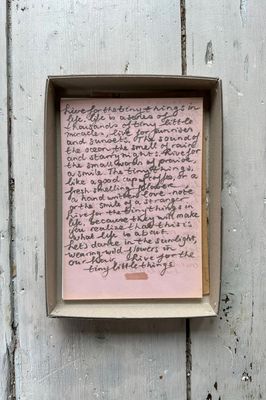 live for the tiny things in
life. life is a series of
thousands of tiny little
miracles, live for sunrises
and sunsets, the sound of
the ocean the smell of rain
and starry nights, live for
the small words of praise,
a smile. The tiny things,
like a good cup of coffee, or a
fresh smelling
a hand written love note
or the smile of a stranger
live for the tiny things in
life, because they will make
you realize that this is
what life is about.
Let's dance in the sunlight,
wearing wild flowers in
our hair. live for the
tiny little things